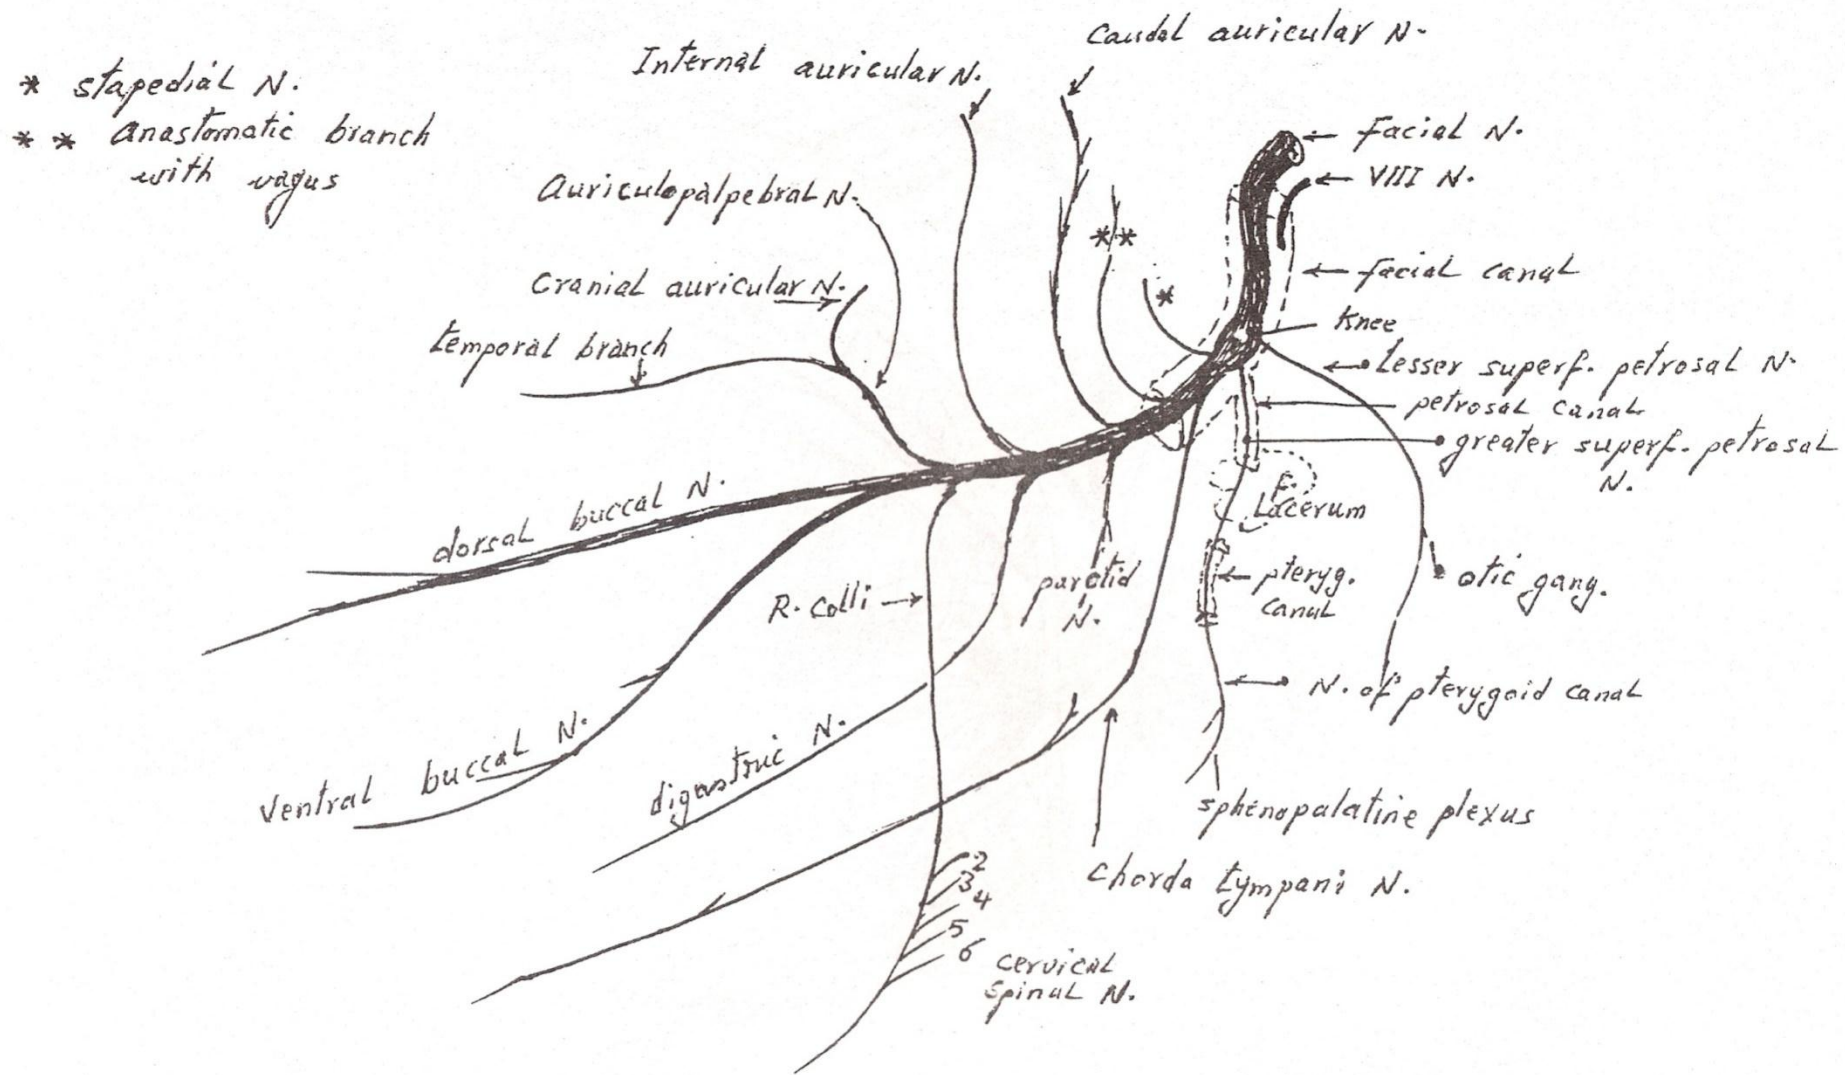 Caudal auricular N.
Internal auricular N.
* stapedial N.
** anastomatic branch
with vagus
Facial N.
VIII N.
Auriculopalpebral N.
**
facial canal
Cranial auricular N.
*
Knee
temporal branch
Lesser superf. petrosal N.
petrosal canal
greater superf. petrosal
N.
dorsal buccal N.
F.
Lacerum
R. colli
parotid
N.
pteryg.
canal
otic gang.
N. of pterygoid canal
Ventral buccal N.
digastric N.
sphenopalatine plexus
Chorda tympani N.
2
3
4
5
6
cervical
spinal N.